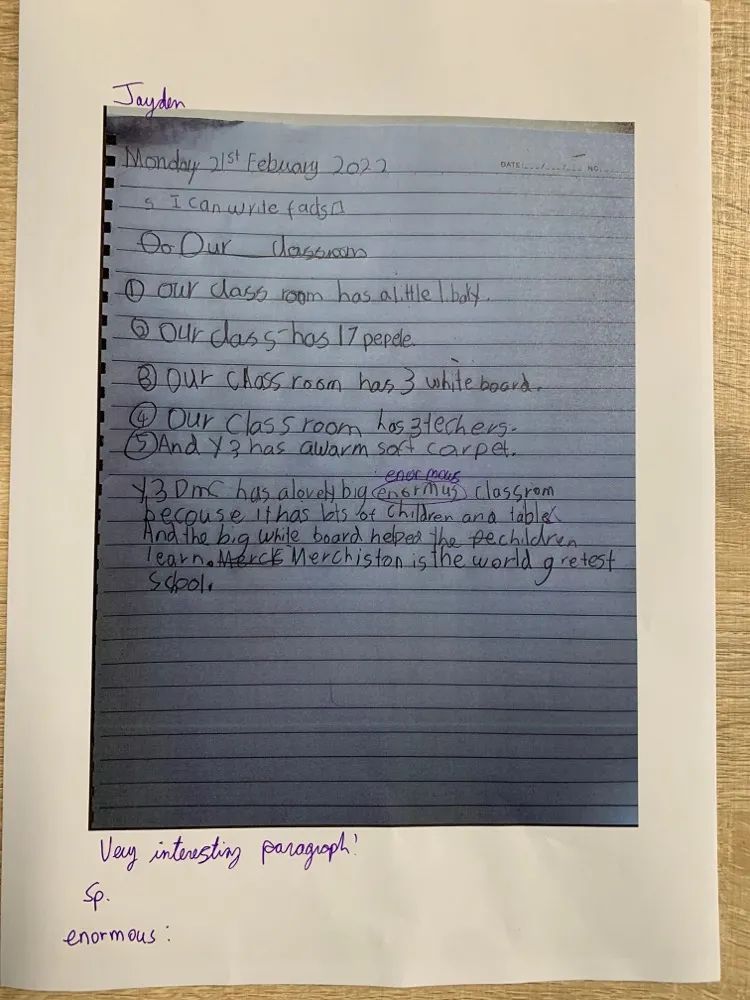 Jayden
Monday 21st Febuary 2022
DATE:___/___/___ NO.
s I can write facts
Our classroom
① our class room has a little
② Our class has 17 pepele
③ Our class room has 3 white board.
④ Our Class room has 3 techers.
⑤ And Y3 has a warm soft carpet.
enormous
Y3 DmC has a lovely big enormus classrom
becouse it has lots of children and tables
And the big white board helpes the pechildren
learn. Merck Merchiston is the world gretest
scool.
Very interesting paragraph!
Sp.
enormous: